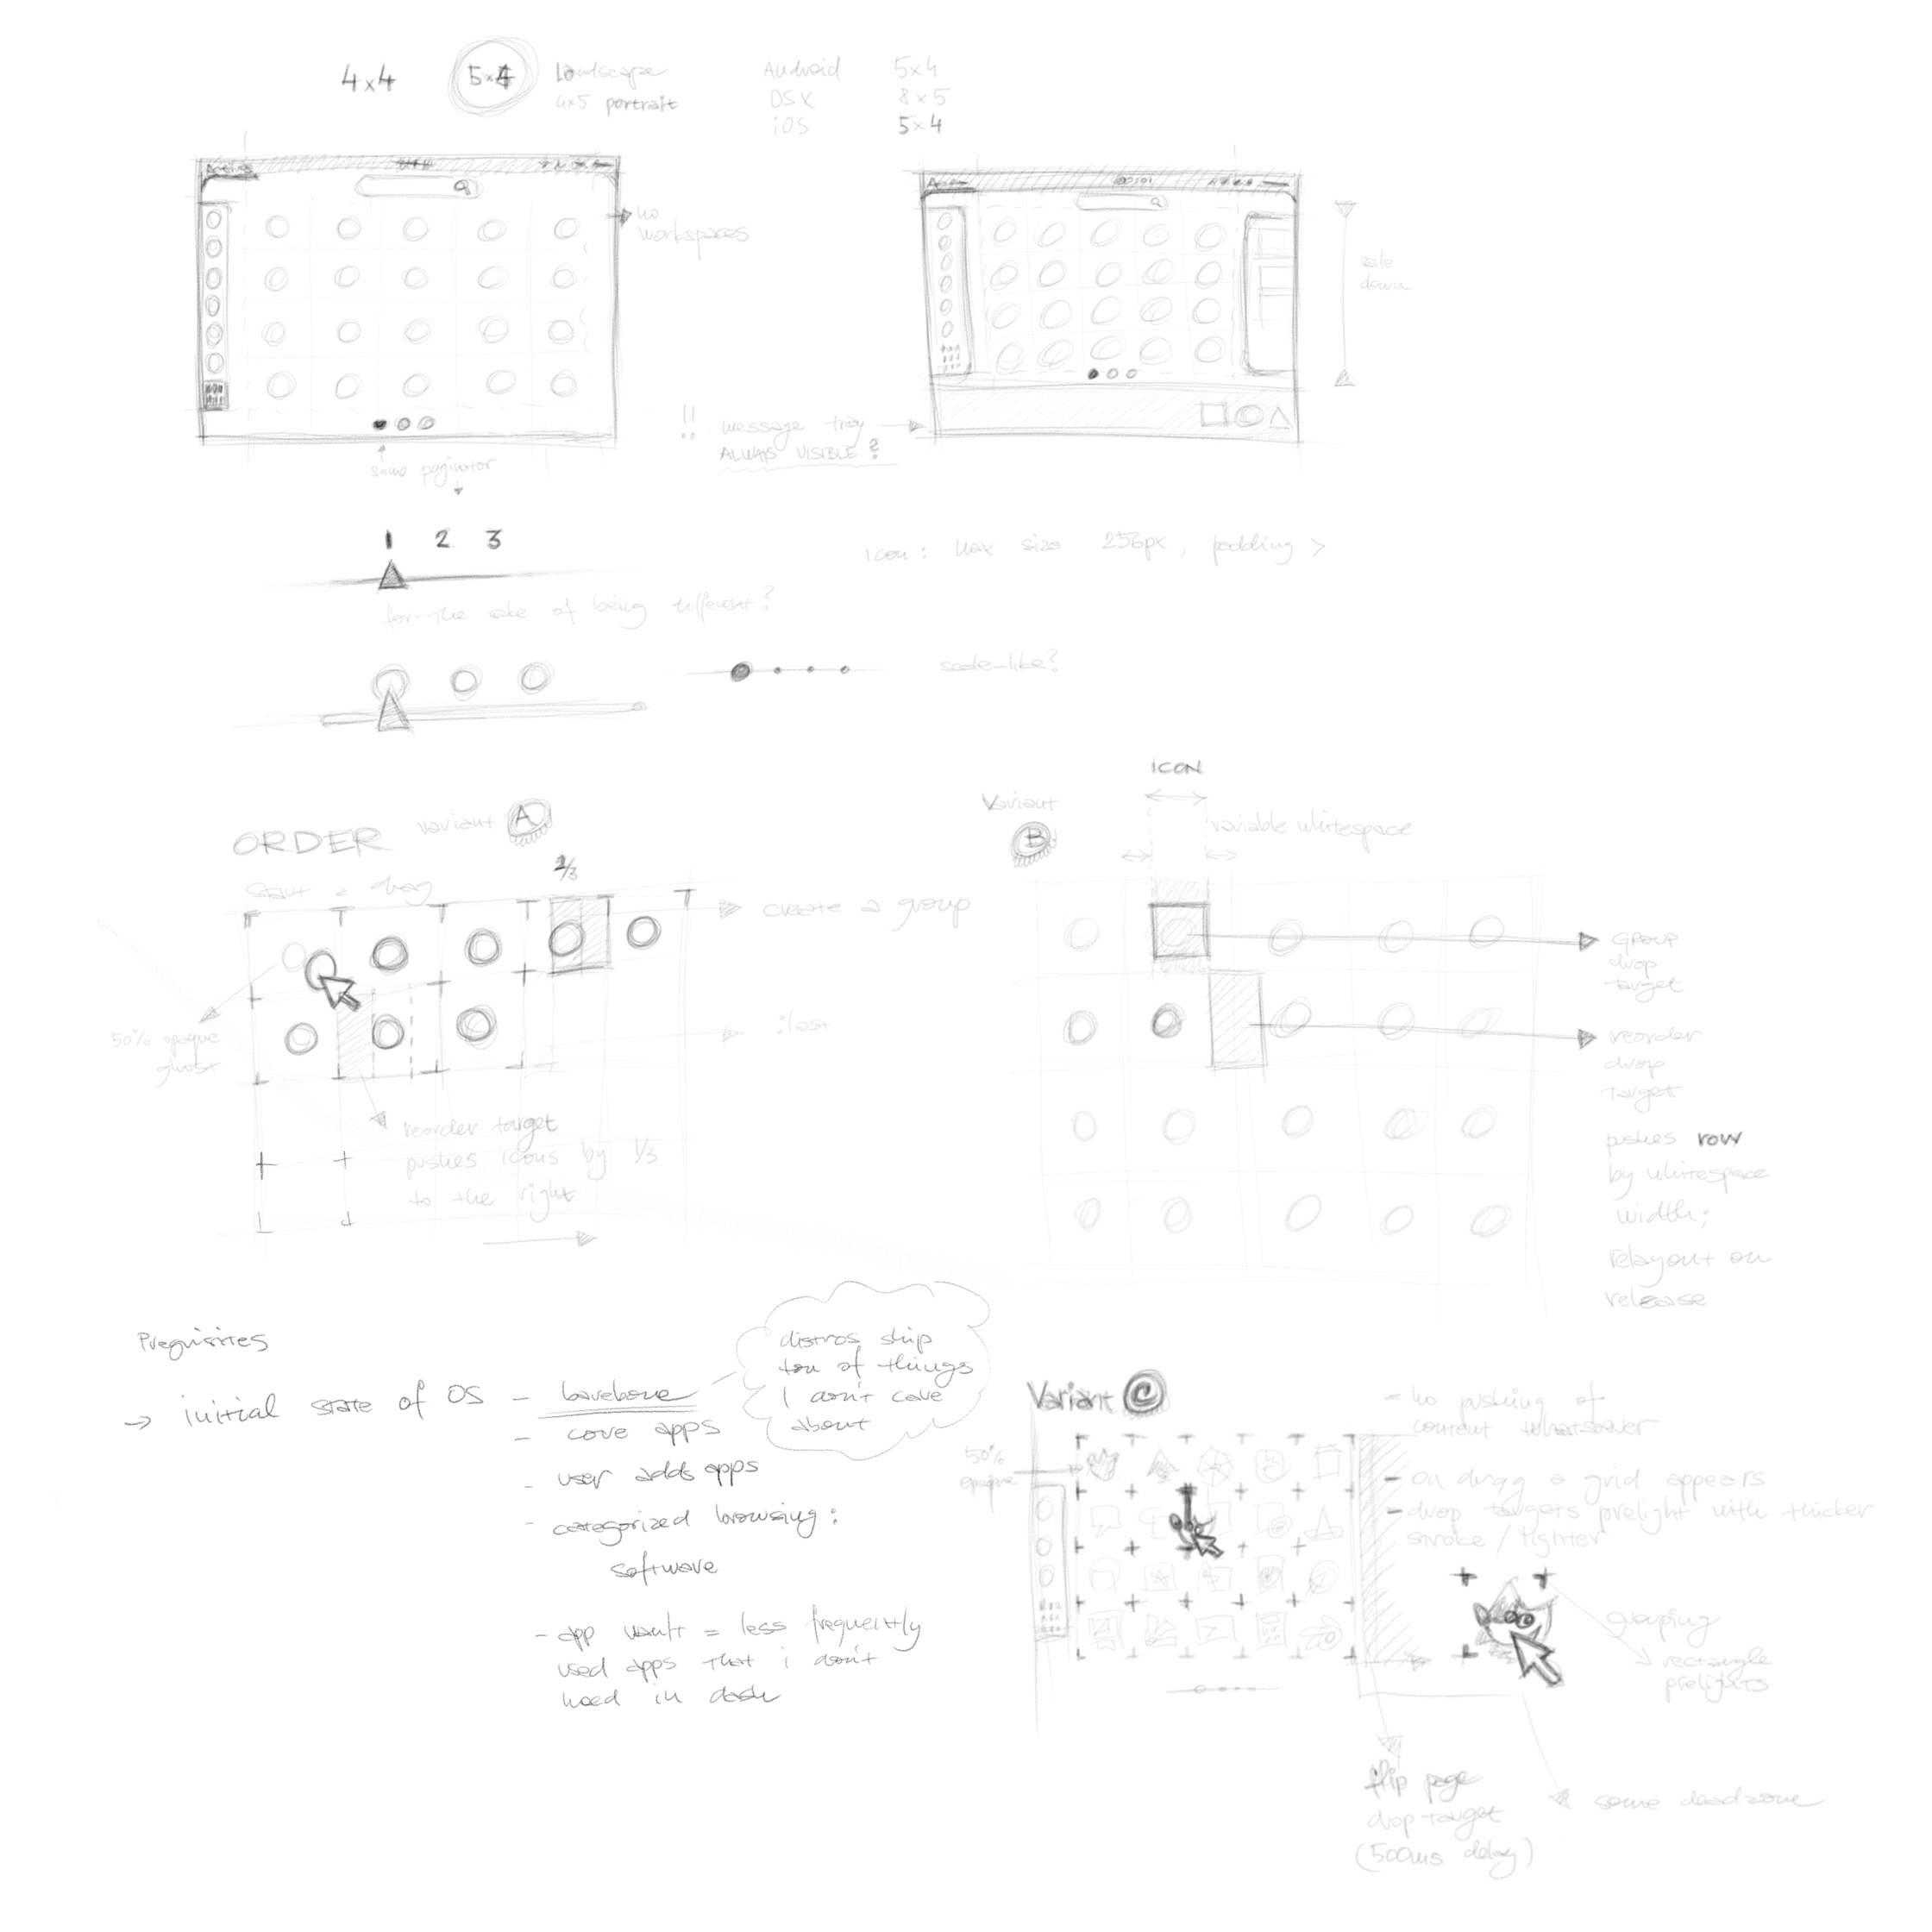 4x4
5x4
Landscape
4x5 portrait
Android 5x4
OSX 8x5
iOS 5x4
no
workspaces
scale
down
!! message tray
ALWAYS VISIBLE?
some paginator
1 2 3
Icon: max size 256px, padding >
for the sake of being different?
scale-like?
ORDER variant A
start = drag
1/3
create a group
:last
50% opaque
ghost
reorder target
pushes icons by 1/3
to the right
ICON
Variant
B
variable whitespace
group
drop
target
reorder
drop
target
pushes row
by whitespace
width;
relayout on
release
Prequisites
→ initial state of OS - barebone
- core apps
- user adds apps
- categorized browsing:
software
- app vault = less frequently
used apps that i don't
need in dash
distros ship
ton of things
I don't care
about
Variant C
50%
opaque
- no pushing of
content whatsoever
- on drag a grid appears
- drop targets prelight with thicker
stroke / lighter
grouping
rectangle
prelights
flip page
drop target
(500ms delay)
some deadzone